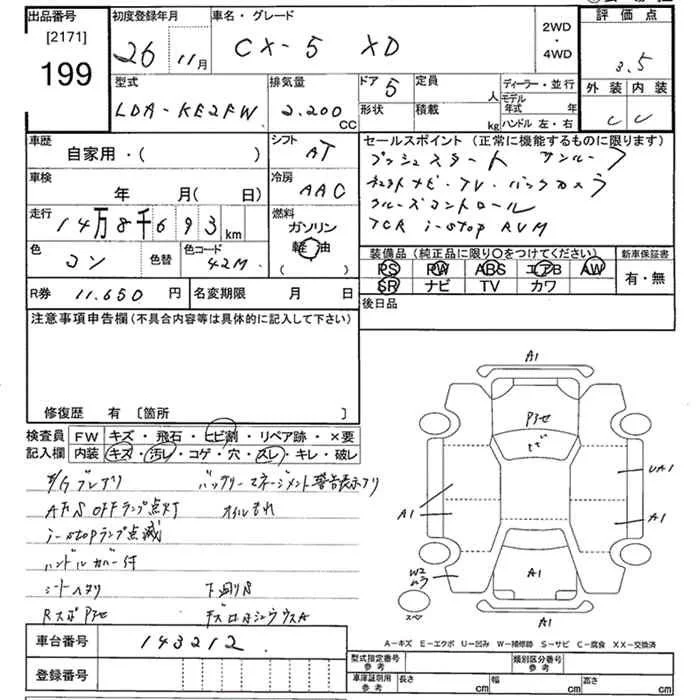 出品番号 初度登録年月 車名・グレード 評価点
[2171]
199
26 11月 CX-5 XD 2WD・4WD 3.5
型式 排気量 ドア 5 定員 人 ディーラー・並行 外装 内装
LDA-KE2FW 2.200 CC 形状 積載 kg モデル年式 年 C C
ハンドル 左・右
車歴 シフト セールスポイント (正常に機能するものに限ります)
自家用・( ) AT プッシュスタート サンルーフ
車検 冷房
年 月(日) AAC
走行 燃料 クルーズコントロール
14万8千693km ガソリン i-stop
軽油
( )
色 色替 色コード 装備品 (純正品に限り〇をつけてください) 新車保証書
コン 42M PS PW ABS エアB AW 有・無
R券 11.650 円 名変期限 月 日 SR ナビ TV カワ
後日品
注意事項申告欄 (不具合内容等は具体的に記入して下さい)
修復歴 有 [箇所 ]
A1
検査員 FW キズ・飛石・ヒビ割・リペア跡・×要
記入欄 内装 キズ・汚レ・コゲ・穴・スレ・キレ・破レ
ヒビ
UA1
A1 A1
AFS OFFランプ点灯 オイルもれ
i-stopランプ点滅
ハンドルカバー付
W2
A1
シートヘタリ 下廻りS
スペア
A1
車台番号 143212
A-キズ E-エクボ U-凹み W-補修跡 S-サビ C-腐食 XX-交換済
登録番号
型式指定番号 参考 類別区分番号 参考
車庫証明用 参考 長さ cm 幅 cm 高さ cm